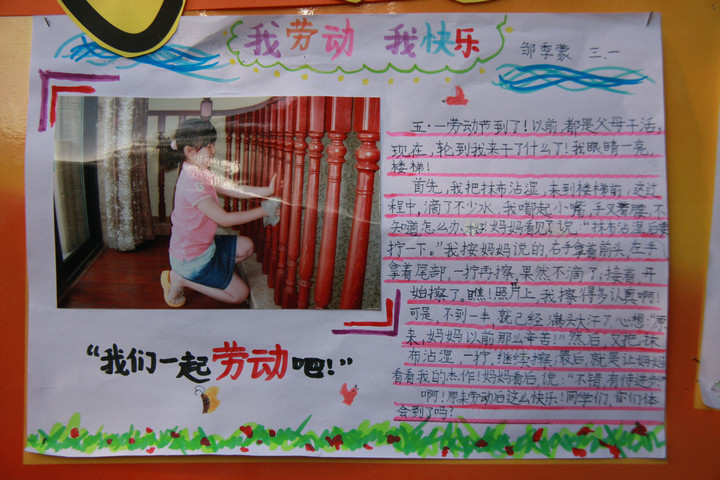 我劳动 我快乐
邹季蒙 三.一
五·一劳动节到了!以前,都是父母干活,
现在,轮到我来干了什么了!我眼睛一亮
楼梯!
首先,我把抹布沾湿,来到楼梯前,这过
程中,滴了不少水,我嘟起小嘴,手叉着腰,不
知道怎么办,妈妈看见了说:“抹布沾湿后要
拧一下。”我按妈妈说的,右手拿着前头,左手
拿着尾部,一拧再擦,果然不滴了,接着,开
始擦了。瞧!照片上,我擦得多认真啊!
可是,不到一半,就己经满头大汗了,心想:“原
来,妈妈以前那么辛苦!”然后,又把抹
布沾湿,一拧,继续擦,最后,就是让妈妈
看看我的杰作!妈妈看后,说:“不错,有待进步”
啊!原来劳动后这么快乐!同学们,你们体
会到了吗?
“我们一起劳动吧!”